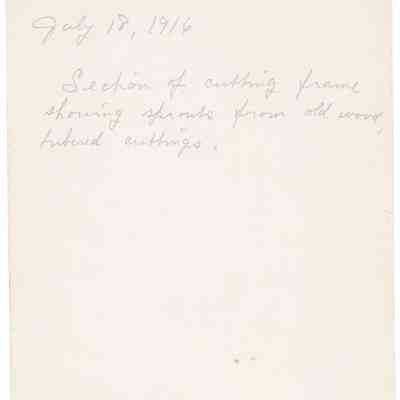 July 18, 1916
Section of cutting frame
showing sprouts from old wood,
tubered cuttings.